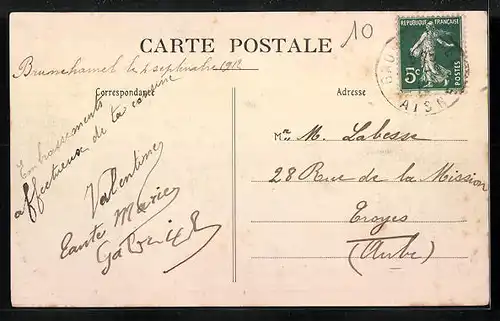 10
CARTE POSTALE
RÉPUBLIQUE FRANÇAISE
5c
POSTES
AISNE
Brunehamel le 2 septembre 1912
Correspondance
Adresse
Embrassements
affectueux de ta cousine
Valentine
Tante Marie
Gabriel
M. M. Labesse
28 Rue de la Mission
Troyes
(Aube)